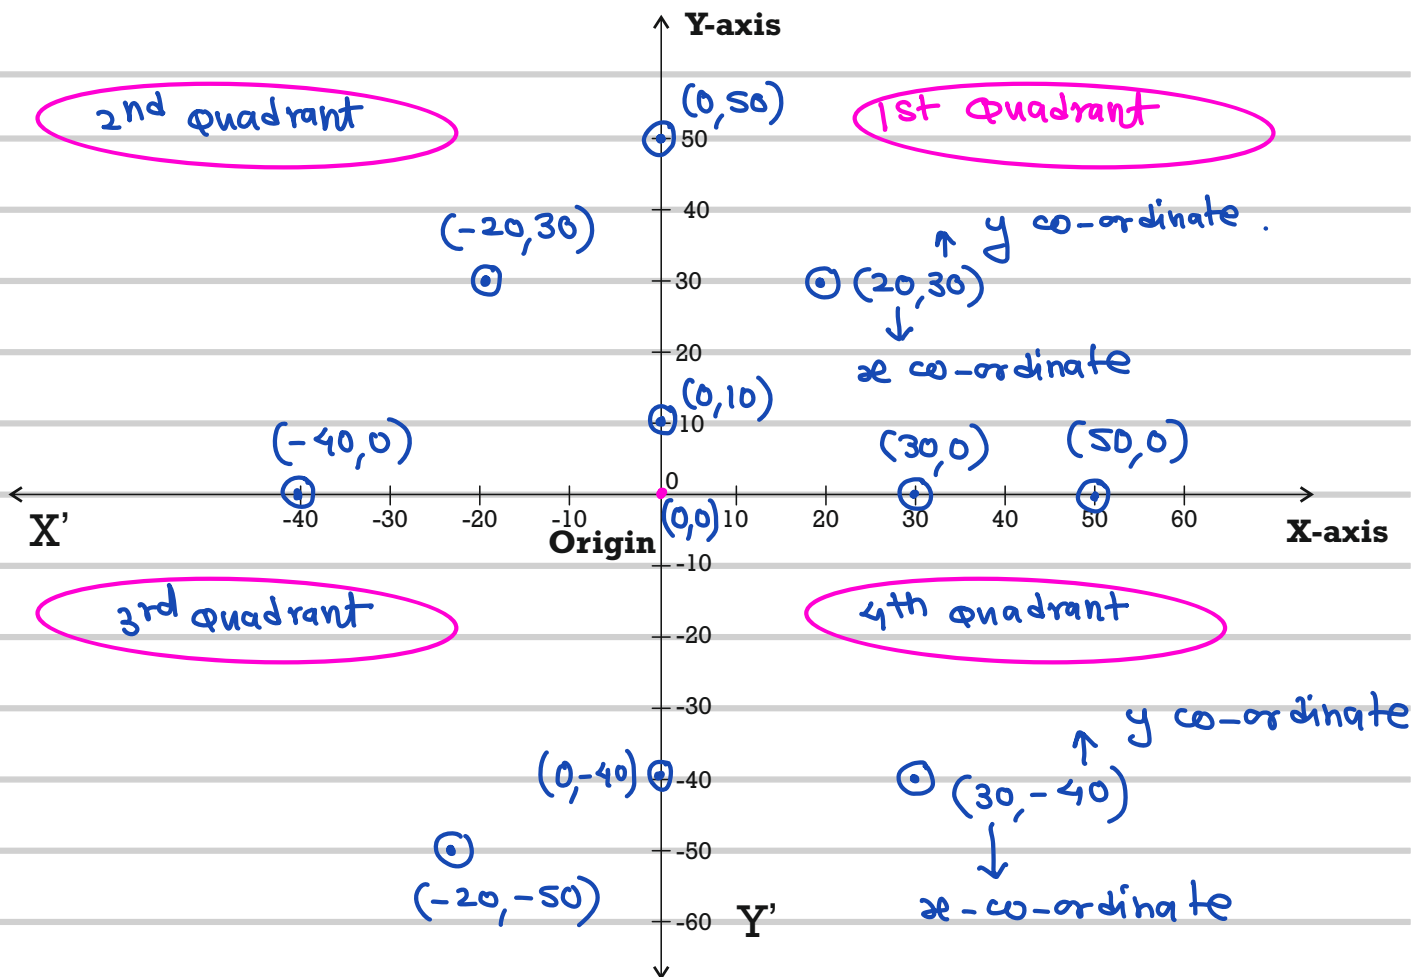 Y-axis
2nd Quadrant
(0,50)
1st Quadrant
50
(-20,30)
40
y co-ordinate.
30
(20,30)
20
x co-ordinate
(0,10)
10
(-40,0)
(30,0)
(50,0)
0
X'
-40 -30 -20 -10
(0,0)
10 20 30 40 50 60
Origin
X-axis
-10
3rd Quadrant
4th Quadrant
-20
-30
y co-ordinate
(0,-40)
-40
(30,-40)
-50
(-20,-50)
x-co-ordinate
-60
Y'